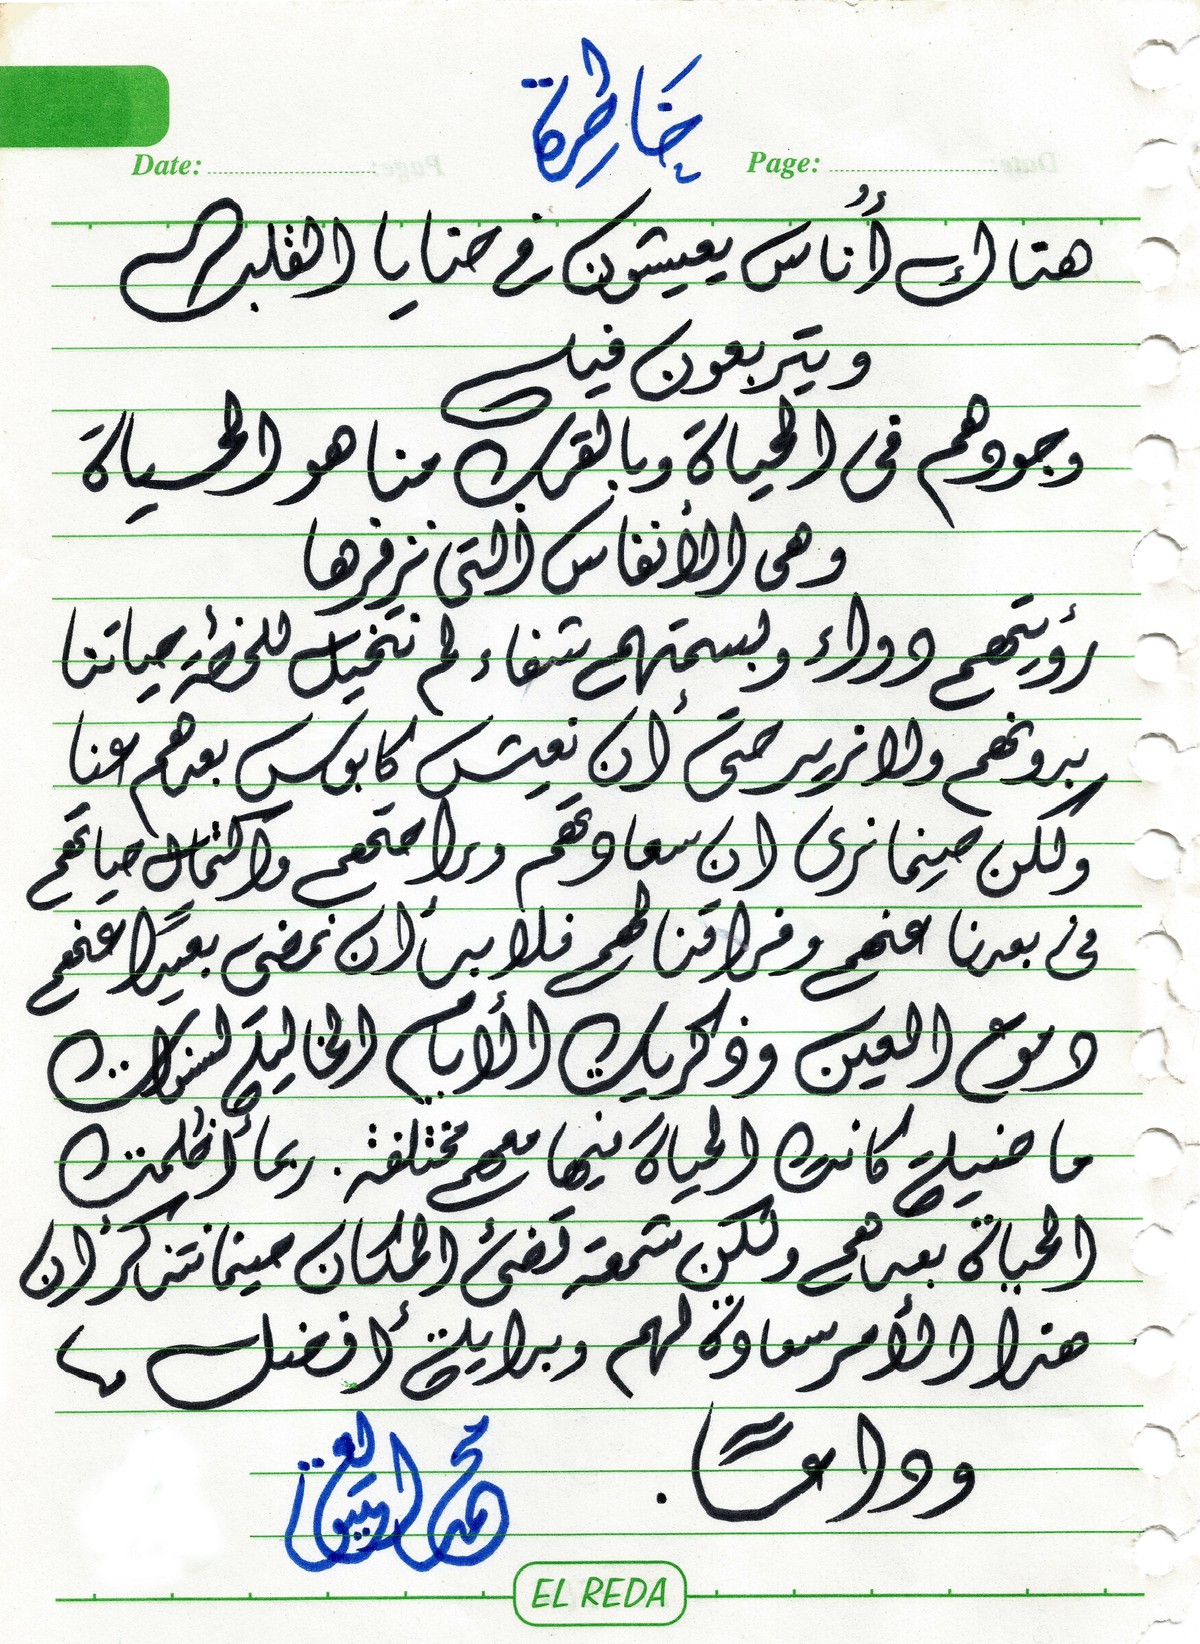 خاطرة
Date: Page:
هناك أُناس يعيشون في حنايا القلب
ويتربعون فيه
وجودهم فى الحياة وبالقرب منا هو الحياة
وهى الأنفاس التى نزفرها
رؤيتهم دواء وبسمتهم شفاء لم نتخيل للحظة حياتنا
بدونهم ولا نريد حتى أن نعيش كابوس بعدهم عنا
ولكن حينما نرى ان سعادتهم وراحتهم واكتمال حياتهم
فى بعدنا عنهم وفراقنا لهم فلابد أن نمضى بعيدًا عنهم
دموع العين وذكريات الأيام الخالية لسنوات
ماضية كانت الحياة فيها معهم مختلفة. ربما أظلمت
الحياة بعدهم ولكن شمعة تضئ المكان حينما نتذكر أن
هذا الأمر سعادة لهم وبداية أفضل
وداعًا.
محمد
EL REDA